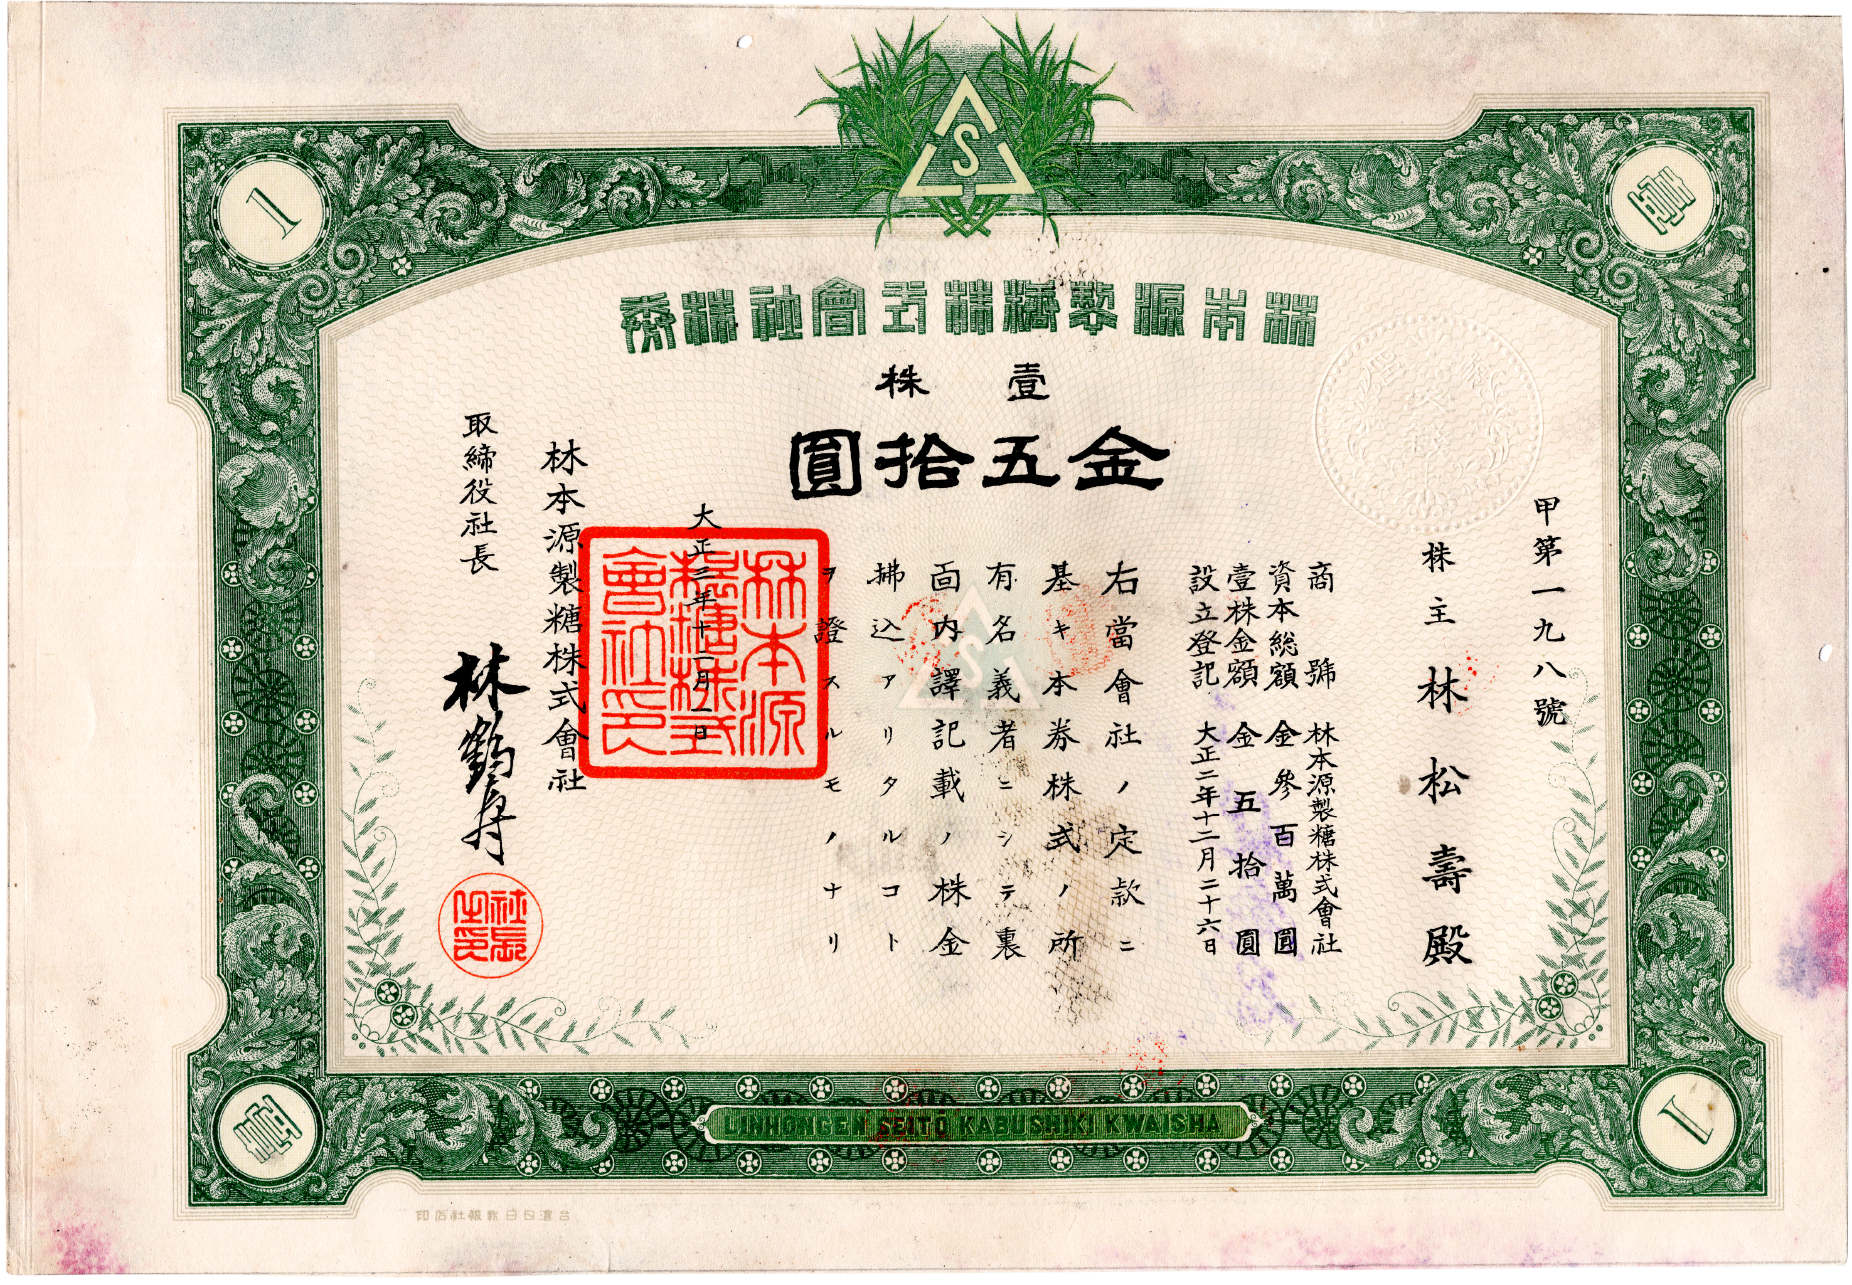 S
1
壹
林本源製糖株式會社株券
壹株
金五拾圓
甲第一九八號
株主 林松壽殿
商號 林本源製糖株式會社
資本総額 金參百萬圓
壹株金額 金五拾圓
設立登記 大正二年十二月二十六日
右當會社ノ定款ニ
基キ本券株式ノ所
有名義者ニシテ裏
面内譯記載ノ株金
拂込アリタルコト
ヲ證スルモノナリ
大正三年十二月一日
林本源製糖株式會社
取締役社長 林鶴壽
林本源
製糖株式
會社印
社長
之印
S
LINHONGEN SEITŌ KABUSHIKI KWAISHA
壹
1
台灣日日新報社石印